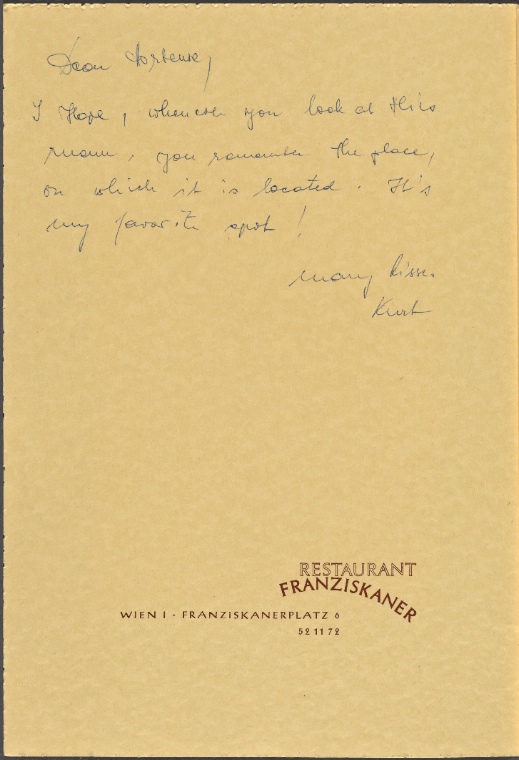 Dear Hortense,
I Hope, whenever you look at this
menu, you remember the place,
on which it is located. It's
my favorite spot!
many kisses
Kurt
RESTAURANT
FRANZISKANER
WIEN I · FRANZISKANERPLATZ 6
52 11 72